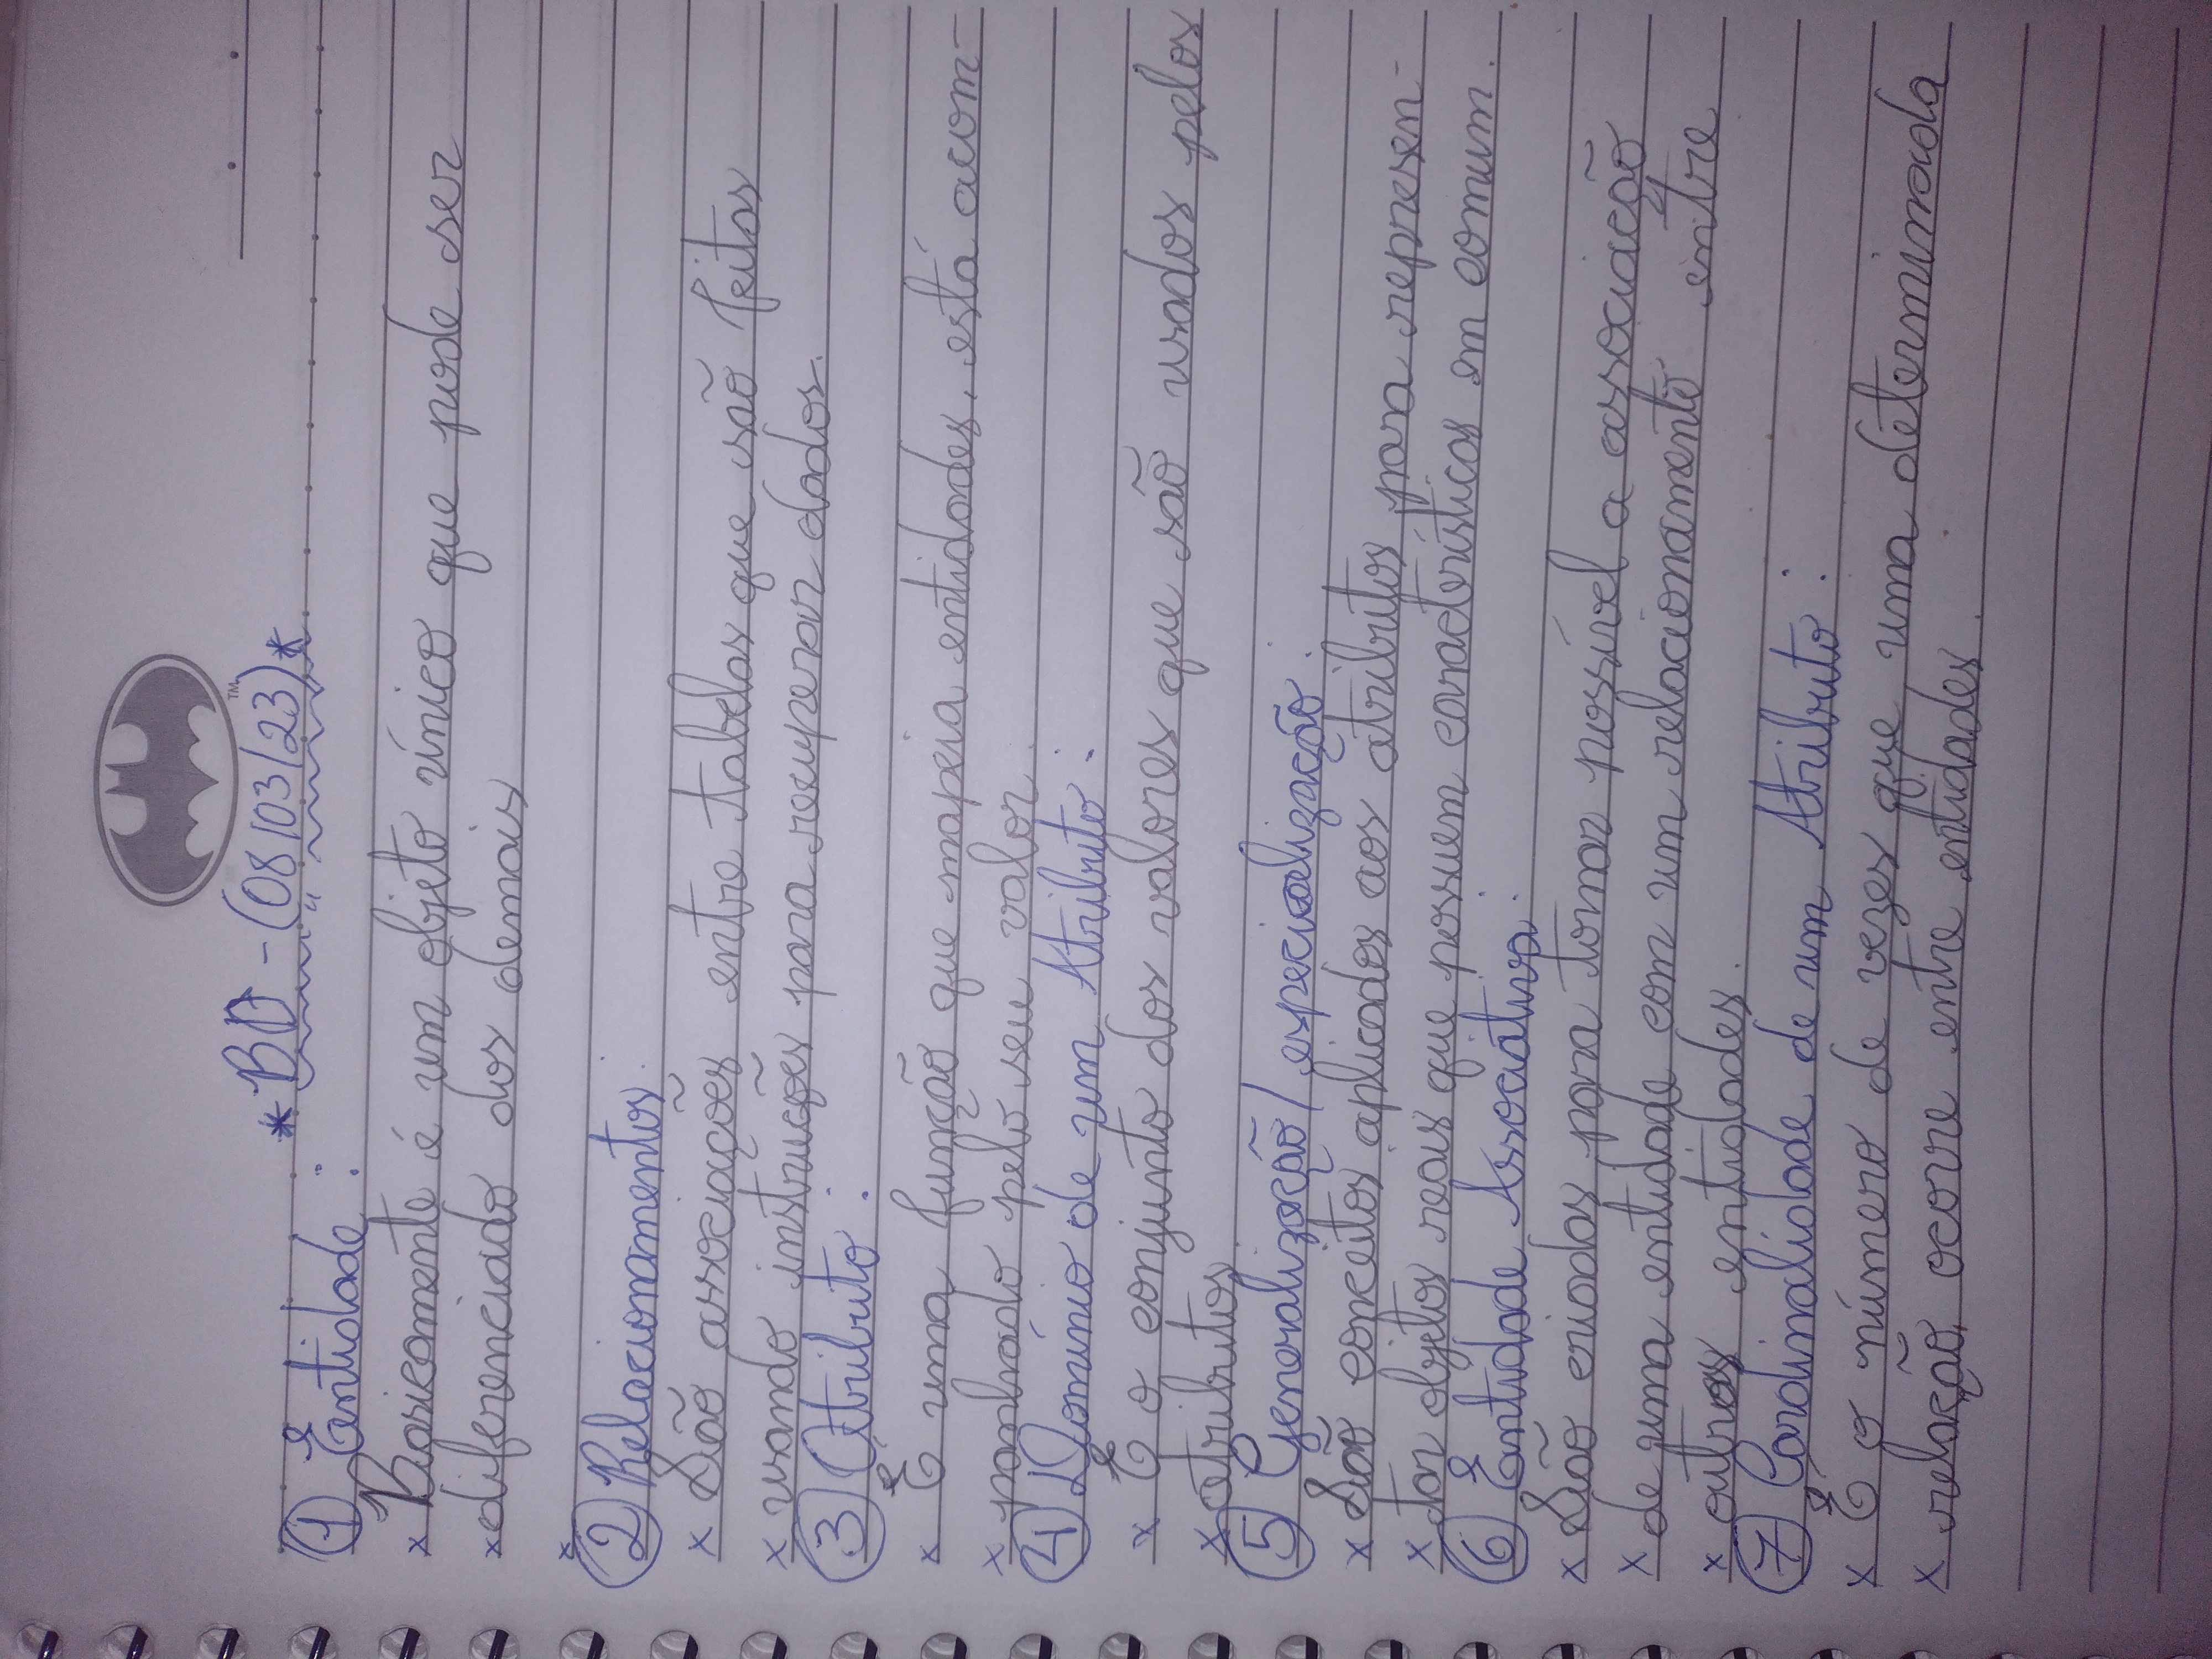 TM
* BD - (08/03/23) *
① Entidade :
x Basicamente é um objeto único que pode ser
x diferenciado dos demais
x
② Relacionamentos :
x São associações entre tabelas que são feitas
x usando instruções para recuperar dados.
③ Atributo :
x É uma função que mapeia entidades, está acom-
x panhado pelo seu valor.
④ Domínio de um Atributo :
x É o conjunto dos valores que são usados pelos
x atributos.
⑤ Generalização / especialização :
x São conceitos aplicados aos atributos para represen-
x tar objetos reais que possuem características em comum.
⑥ Entidade Associativa :
x São criadas para tornar possível a associação
x de uma entidade com um relacionamento entre
x outras entidades.
⑦ Cardinalidade de um Atributo :
x É o número de vezes que uma determinada
x relação ocorre entre entidades.